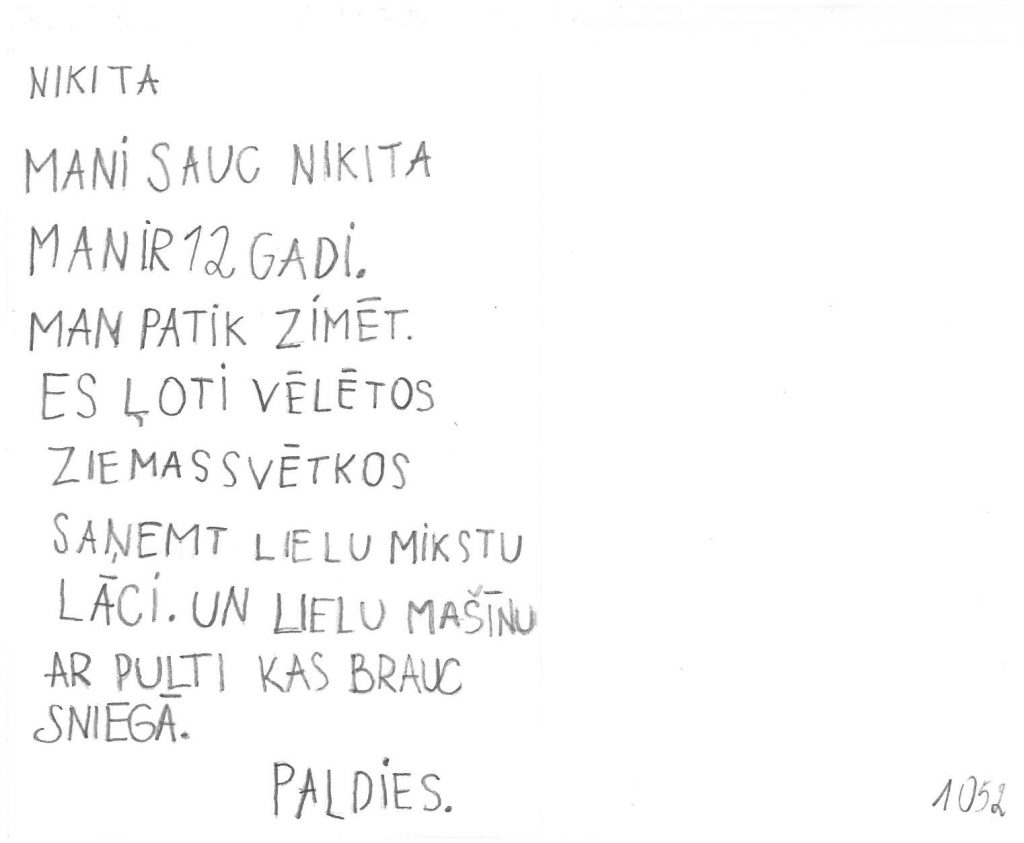 NIKITA
MANI SAUC NIKITA
MAN IR 12 GADI.
MAN PATIK ZIMĒT.
ES ĻOTI VĒLĒTOS
ZIEMASSVĒTKOS
SAŅEMT LIELU MIKSTU
LĀCI. UN LIELU MAŠĪNU
AR PULTI KAS BRAUC
SNIEGĀ.
PALDIES.
1052